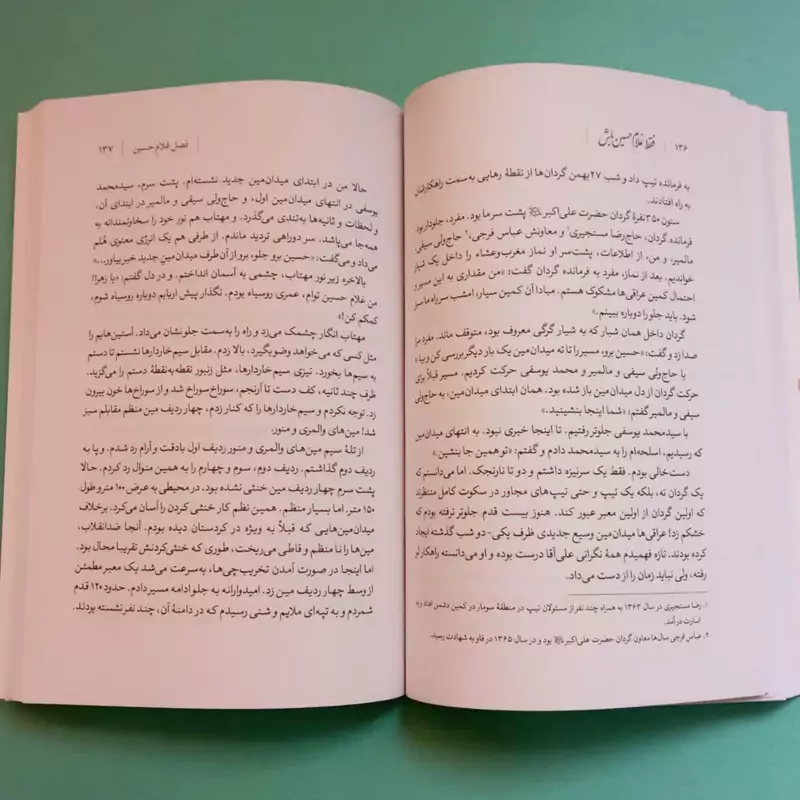 ۱۳۶ | فقط غلام حسین باش
به فرمانده تیپ داد و شب ۲۷ بهمن گردان‌ها از نقطهٔ رهایی به‌سمت راهکارشان
به راه افتادند.
ستون ۳۵۰ نفرهٔ گردان حضرت علی‌اکبر پشت سرما بود. مفرد، جلودار بود
فرمانده گردان، حاج‌رضا مستجیری۱ و معاونش عباس فرجی،۲ حاج‌ولی سیفی
مالمیر، و من، از اطلاعات، پشت‌سر او نماز مغرب‌وعشاء را داخل یک شیار
خواندیم. بعد از نماز، مفرد به فرمانده گردان گفت: «من مقداری به این مسیر و
احتمال کمین عراقی‌ها مشکوک هستم. مبادا آن کمین سیار، امشب سر راه ما سبز
شود. باید جلو را دوباره ببینم.»
گردان داخل همان شیار که به شیار گرگی معروف بود، متوقف ماند. مفرد مرا
صدا زد و گفت: «حسین برو، مسیر را تا ته میدان‌مین یک بار دیگر بررسی کن و بیا»
با حاج‌ولی سیفی و مالمیر و محمد یوسفی حرکت کردیم. مسیر قبلاً برای
حرکت گردان از دل میدان‌مین باز شده بود. همان ابتدای میدان‌مین، به حاج‌ولی
سیفی و مالمیر گفتم: «شما اینجا بنشینید.»
با سیدمحمد یوسفی جلوتر رفتیم. تا اینجا خبری نبود. به انتهای میدان‌مین
که رسیدیم، اسلحه‌ام را به سیدمحمد دادم و گفتم: «تو همین جا بنشین.»
دست‌خالی بودم. فقط یک سرنیزه داشتم و دو تا نارنجک. اما می‌دانستم که
یک گردان نه، بلکه یک تیپ و حتی تیپ‌های مجاور در سکوت کامل منتظرند
که اولین گردان از اولین معبر عبور کند. هنوز بیست قدم جلوتر نرفته بودم که
خشکم زد! عراقی‌ها میدان‌مین وسیع جدیدی ظرف یکی-دو شب گذشته ایجاد
کرده بودند. تازه فهمیدم همهٔ نگرانی علی‌آقا درست بوده و او می‌دانسته راهکار لو
رفته، ولی نباید زمان را از دست می‌داد.
۱. رضا مستجیری در سال ۱۳۶۳ به همراه چند نفر از مسئولان تیپ در منطقهٔ سومار در کمین دشمن افتاد و به
اسارت در آمد.
۲. عباس فرجی سال‌ها معاون گردان حضرت علی‌اکبر بود و در سال ۱۳۶۵ در فاو به شهادت رسید.
فصل غلام حسین | ۱۳۷
حالا من در ابتدای میدان‌مین جدید نشسته‌ام. پشت سرم، سیدمحمد
یوسفی در انتهای میدان‌مین اول، و حاج‌ولی سیفی و مالمیر در ابتدای آن.
و لحظات و ثانیه‌ها به‌تندی می‌گذرد. و مهتاب هم نور خود را سخاوتمندانه به
همه‌جا می‌پاشد. سر دوراهی تردید ماندم. از طرفی هم یک انرژی معنوی هُلم
می‌داد و می‌گفت: «حسین برو جلو، برو از آن طرف میدان‌مینِ جدید خبر بیاور...»
بالاخره زیر نور مهتاب، چشمی به آسمان انداختم. و در دل گفتم: «یا زهرا!
من غلام حسین توام، عمری روسیاه بودم. نگذار پیش اربابم دوباره روسیاه شوم،
کمکم کن!»
مهتاب انگار چشمک می‌زد و راه را به‌سمت جلو نشان می‌داد. آستین‌هایم را
مثل کسی که می‌خواهد وضو بگیرد، بالا زدم. مقابل سیم خاردارها نشستم تا دستم
به سیم‌ها بخورد. تیزی سیم‌خاردارها، مثل زنبور نقطه‌به‌نقطهٔ دستم را می‌گزید.
ظرف چند ثانیه، کف دست تا آرنجم، سوراخ‌سوراخ شد و از سوراخ‌ها خون بیرون
زد. توجه نکردم و سیم خاردارها را که کنار زدم، چهار ردیف مین منظم مقابلم سبز
شد! مین‌های والمری و منور.
از تلهٔ سیم مین‌های والمری و منور ردیف اول بادقت و آرام رد شدم. و پا به
ردیف دوم گذاشتم. ردیف دوم، سوم و چهارم را به همین منوال رد کردم. حالا
پشت سرم چهار ردیف مین خنثی نشده بود. در محیطی به عرض ۱۰۰ متر و طول
۱۵۰ متر. اما بسیار منظم. همین نظم کار خنثی کردن را آسان می‌کرد. برخلاف
میدان‌مین‌هایی که قبلاً به ویژه در کردستان دیده بودم. آنجا ضدانقلاب،
مین‌ها را نا منظم و قاطی می‌ریخت، طوری که خنثی‌کردنش تقریبا محال بود.
اما اینجا در صورت آمدن تخریب‌چی‌ها، به‌سرعت می‌شد یک معبر مطمئن
از وسط چهار ردیف مین زد. امیدوارانه به جلو ادامه مسیر دادم. حدود ۱۲۰ قدم
شمردم و به تپه‌ای ملایم و شنی رسیدم که در دامنهٔ آن، چند نفر نشسته بودند.